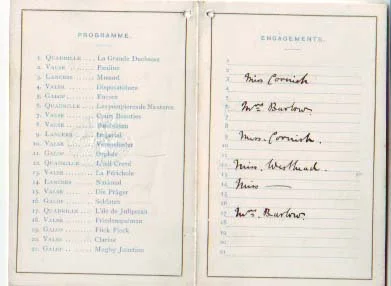 PROGRAMME.
1. QUADRILLE ... La Grande Duchesse
2. VALSE ........ Pauline
3. LANCERS .... Musard
4. VALSE ........
5. GALOP ........ Encore
6. QUADRILLE
7. VALSE ........ Cours Beauties
8. VALSE ........
9. LANCERS .... Imperial
10. VALSE ........
11. GALOP ........ Orphée
12. QUADRILLE ... L'œil Crevé
13. VALSE ........ La Périchole
14. LANCERS .... National
15. VALSE ........ Die Präger
16. GALOP ........ Soldaten
17. QUADRILLE ... L'île de Tulipatan
18. VALSE ........ Friedenspalmen
19. GALOP ........ Flick Flock
20. VALSE ........ Clarice
21. GALOP ........ Mugby Junction
ENGAGEMENTS.
1
2
3 Miss Cornish
4
5
6 Mrs Barlow.
7
8
9 Miss. Cornish.
10
11
12 Miss. Westhead.
13
14 Miss —
15
16
17 Mrs. Barlow.
18
19
20
21